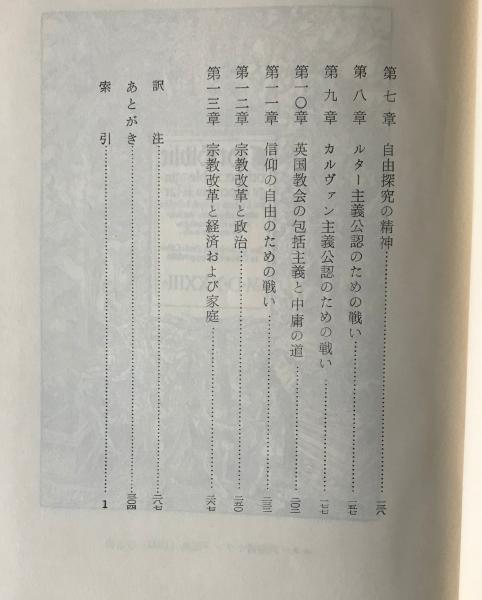 第七章 自由探究の精神……一三八
第八章 ルター主義公認のための戦い……一五七
第九章 カルヴァン主義公認のための戦い……一七七
第一〇章 英国教会の包括主義と中庸の道……二〇二
第一一章 信仰の自由のための戦い……二三二
第一二章 宗教改革と政治……二五〇
第一三章 宗教改革と経済および家庭……二六七
訳注……二八七
あとがき……三〇四
索引……1